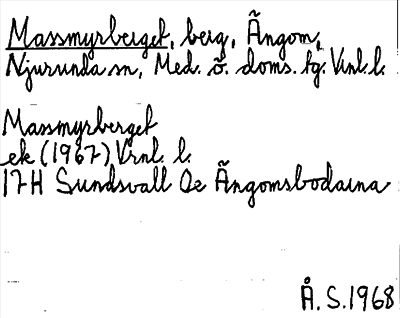 Massmyrberget, berg, Ängom,
Njurunda sn, Med. ö. doms. tg. Vnl. l.
Massmyrberget
ek (1967) Vrnl. l.
17H Sundsvall Oe Ängomsbodarna
Å. S. 1968